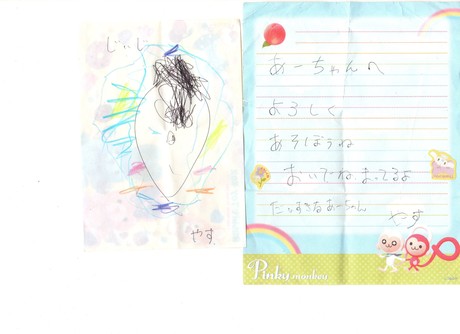 じぃじ
やす
あーちゃんへ
よろしく
あそぼうね
おいでね まってるよ
だいすきなあーちゃん
やす
Pinky monkey